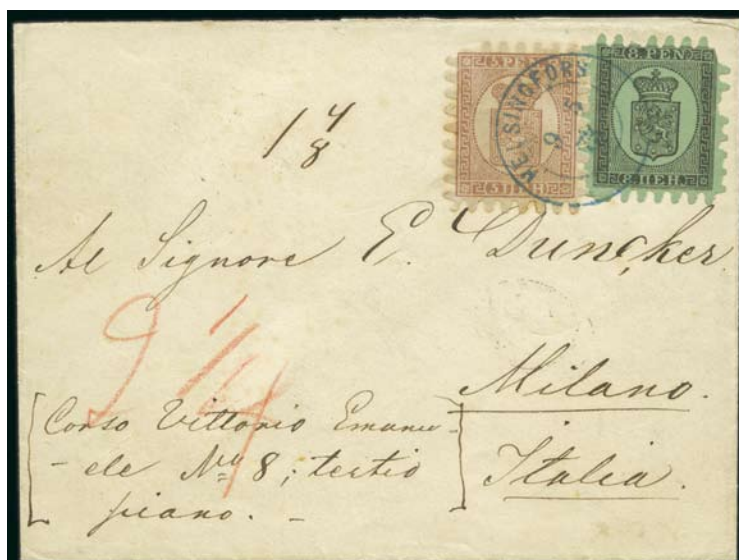 5 PEN
8 PEN
HELSINGFORS
9 5
5 ПЕН
8 ПЕН.
1 4
8
Al Signore E. Duncker
9 1/4
Milano.
Italia.
[Corso Vittorio Emanu-
-ele No 8; tertio
piano. -]